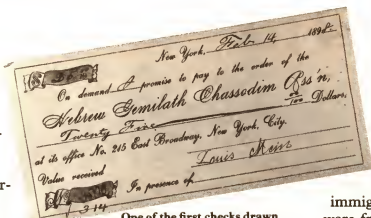 New York, Feb 14 1898
On demand I promise to pay to the order of the
Hebrew Gemilath Chassodim Ass'n,
Twenty Five 00/100 Dollars.
at its office No. 215 East Broadway, New York, City.
Value received Louis
In presence of
314
r-
One of the first checks drawn
immig
were fr